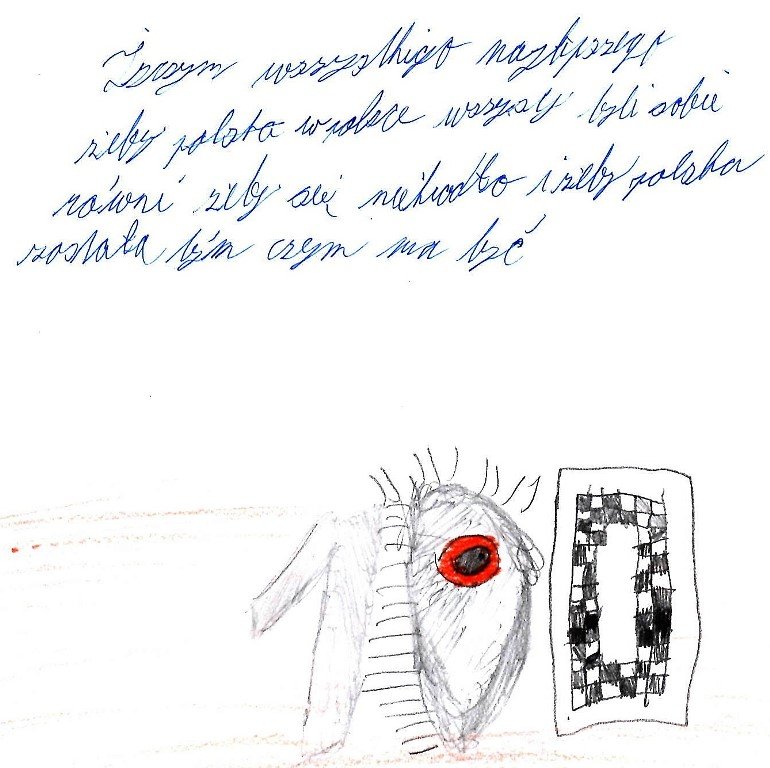 Życzym wszystkigo najlepszego
żeby polska w polsce wszyscy byli sobie
równi żeby się niekradło i żeby polska
została tym czym ma być
100